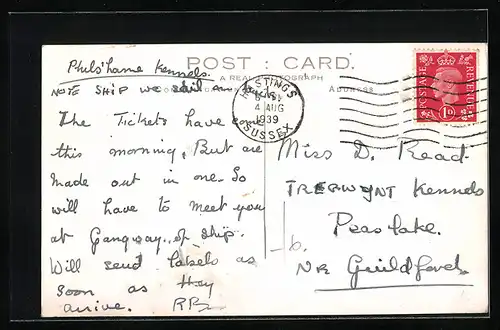 POST : CARD.
A REAL PHOTOGRAPH
ADDRESS
Phils'hame Kennels.
NOTE SHIP we sail on
The Tickets have come
this morning, But are
made out in one. So
will have to meet you
at Gangway of ship.
Will send labels as
soon as they
arrive. RP
HASTINGS
4 AUG
1939
SUSSEX
POSTAGE
REVENUE
1D
Miss D. Read.
TREGWYNT Kennels
Peaslake.
NR Guildford.